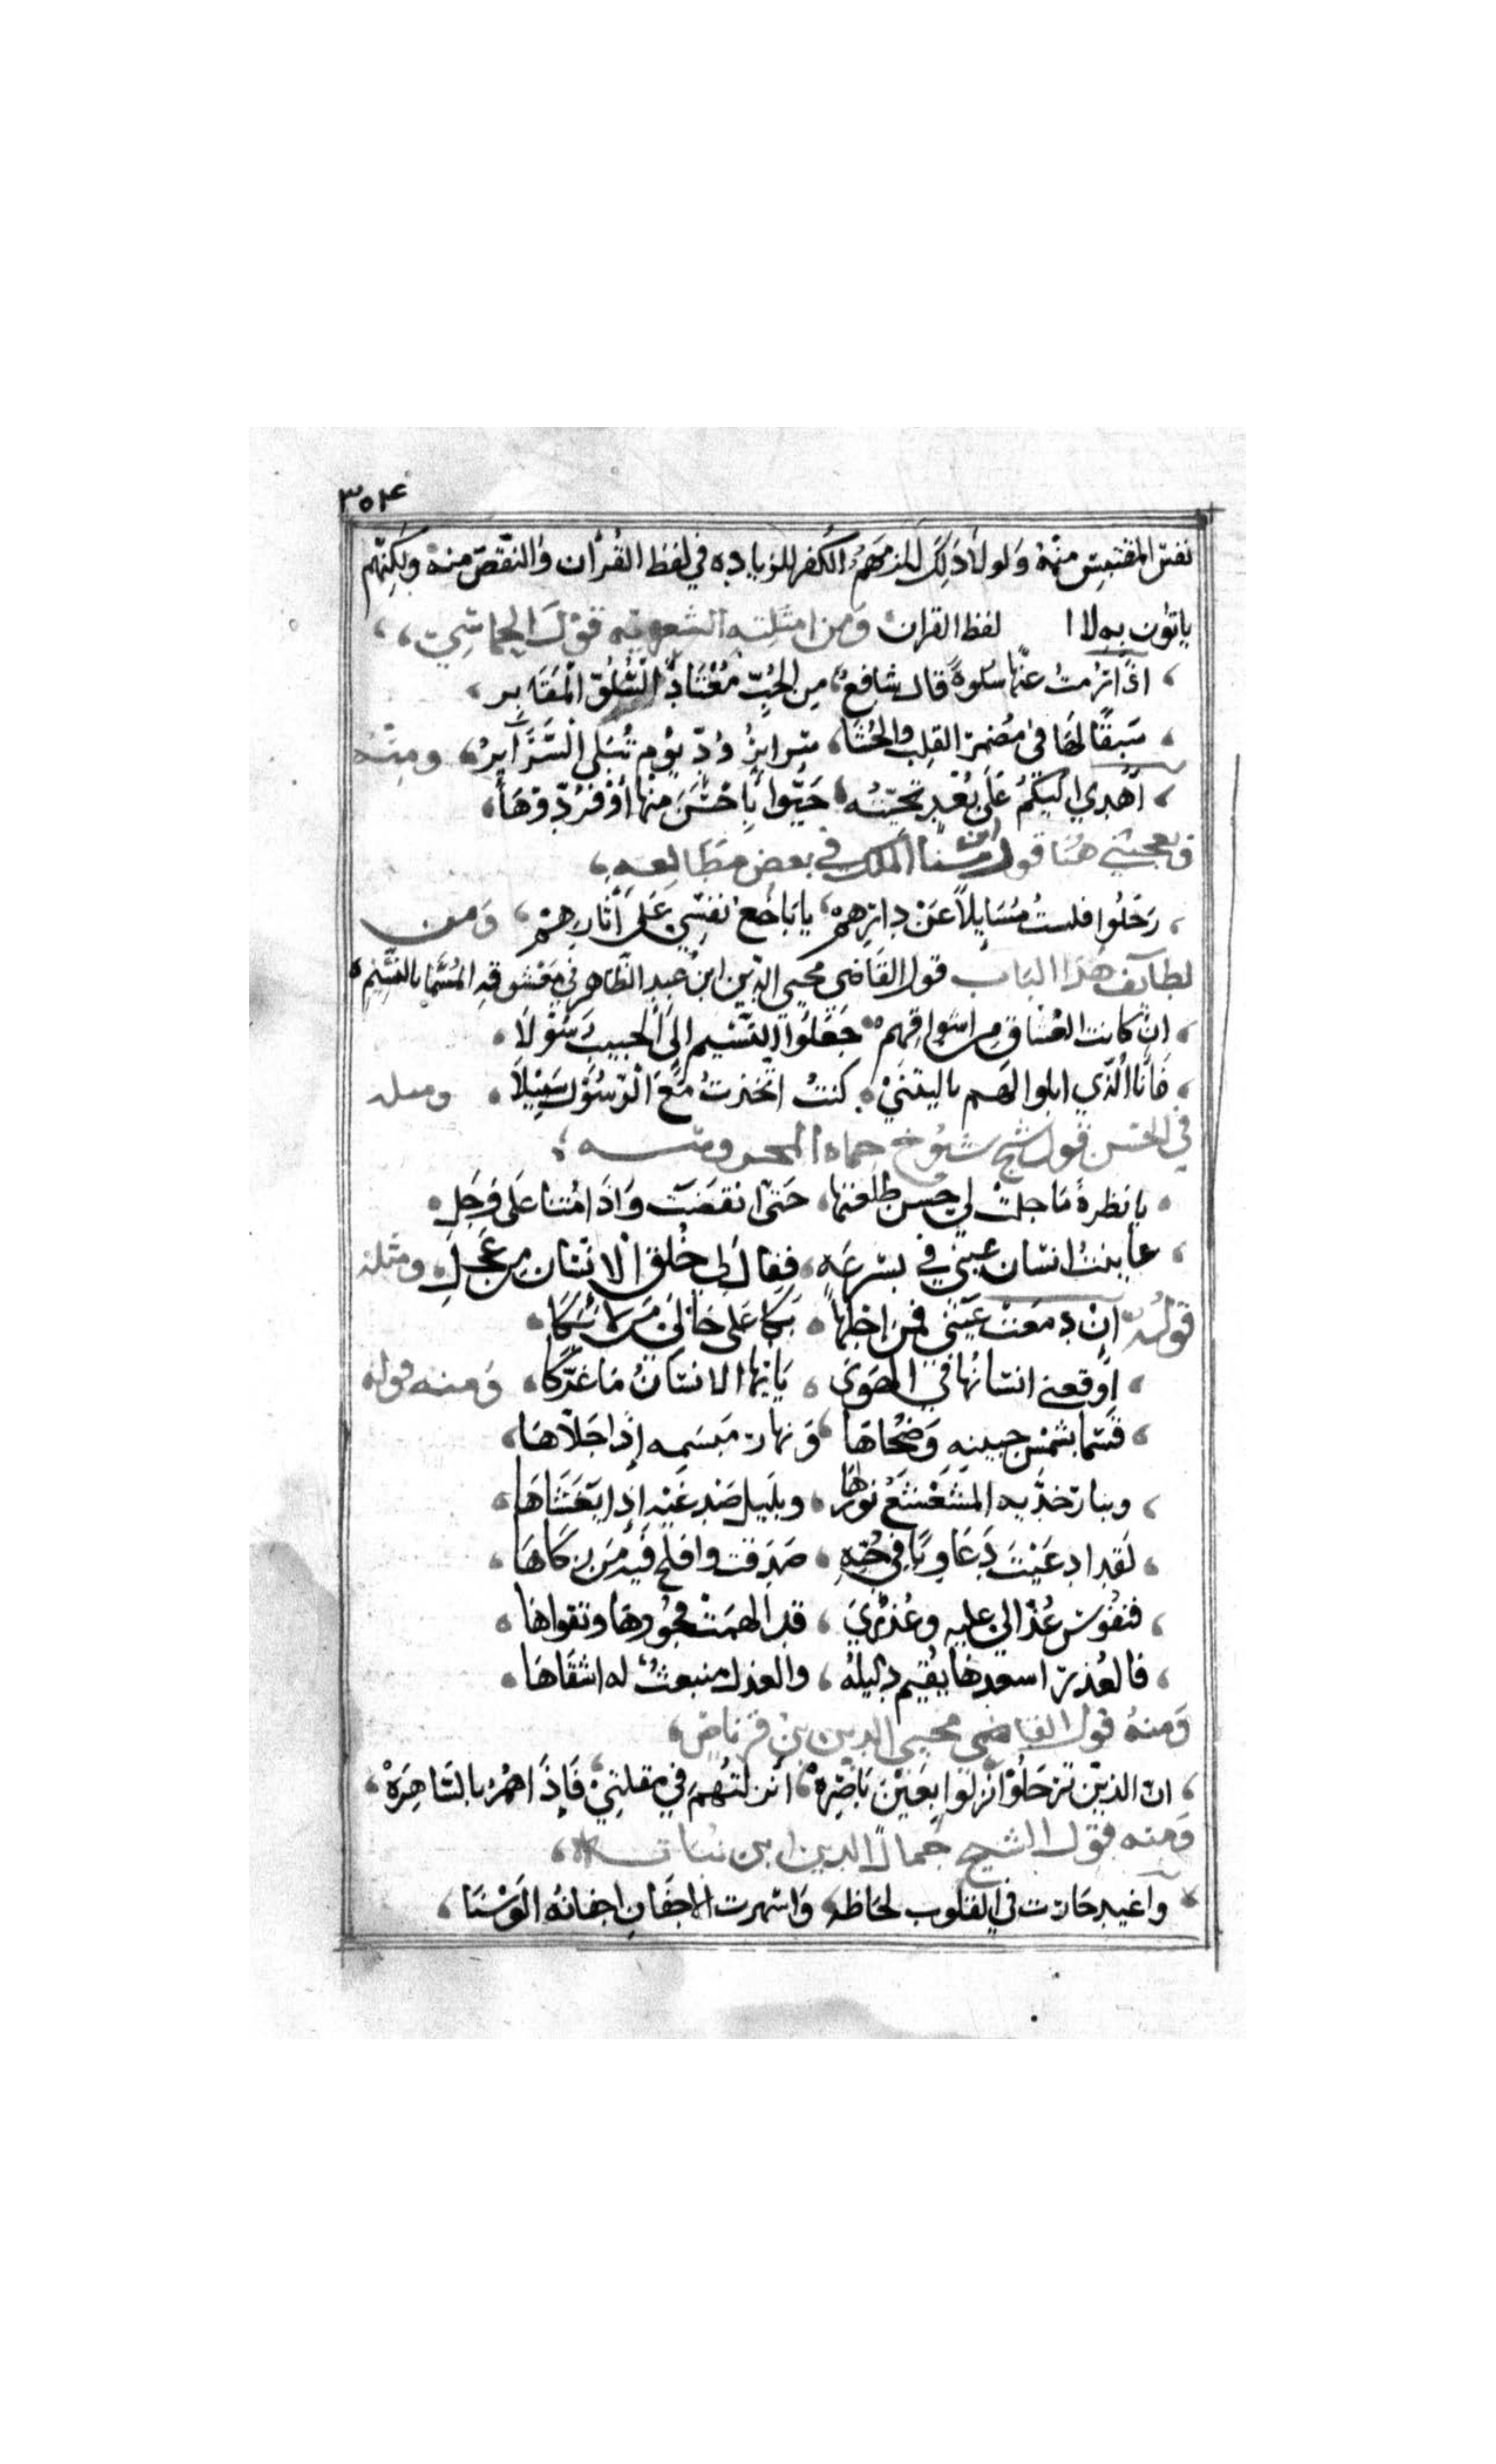 ٣٥٤
نفس المقتبس منه ولولا ذلك للزمهم الكفر للزيادة في لفظ القرآن والنقص منه ولكنهم
ياتون به لا لفظ القران ومن امثلته الشعرية قول الحماسي
اذا رمت عنها سلوة قال شافع من الحب ميعاد السلو المقابر
ستبقا لها في مضمر القلب والحشا سراير ود يوم تبلى السراير ومنه
اهدي اليكم على بعد تحيته حيوا باحسن منها او فردوها
ويعجبني هنا قول ابن سنا الملك في بعض مطالعه
رحلوا فلست مسايلا عن دارهم يا باخع نفسي على آثارهم ومن
لطايف هذا الباب قول القاضى محيى الدين ابن عبد الظاهر في معشوقه المسما بالنسيم
ان كانت العشاق من اشواقهم جعلوا النسيم الى الحبيب رسولا
فانا الذي اتلوا لهم ياليتني كنت اتخذت مع الرسول سبيلا ومثله
في الحسن قول شيخ شيوخ حماه المحروسه
يا نظرة ما جلت لي حسن طلعتها حتى انقضت واذامتنا على وجل
عاينت انسان عيني في بسرعه فقال لي خلق الانسان من عجل ومثله
قوله ان دمعت عيني فمن اجلها بكا على حالي من لا بكا
اوقعني انسانها في الهوى يا ايها الانسان ما غركا ومنه قوله
قسما بشمس جبينه وضحاها ونهار مبسمه إذا جلاها
وبنار خديه المشعشع نورها وبليل صدغيه إذا يغشاها
لقد ادعيت دعاويا في حبه صدقت وافلح فيه من زكاها
فنفوس عذالي عليه وعذري قد الهمت فجورها وتقواها
فالعذر اسعدها يقيم دليله والعذل منبعث له اشقاها
ومنه قول القاضي محيى الدين بن قرناص
ان الذين ترحلوا نزلوا بعين ناضره انزلتهم في مقلتي فإذا هم بالساهره
ومنه قول الشيخ جمال الدين ابن نباته
واغيد جارت في القلوب لحاظه واسهرت الاجفان اجفانه الوسنا